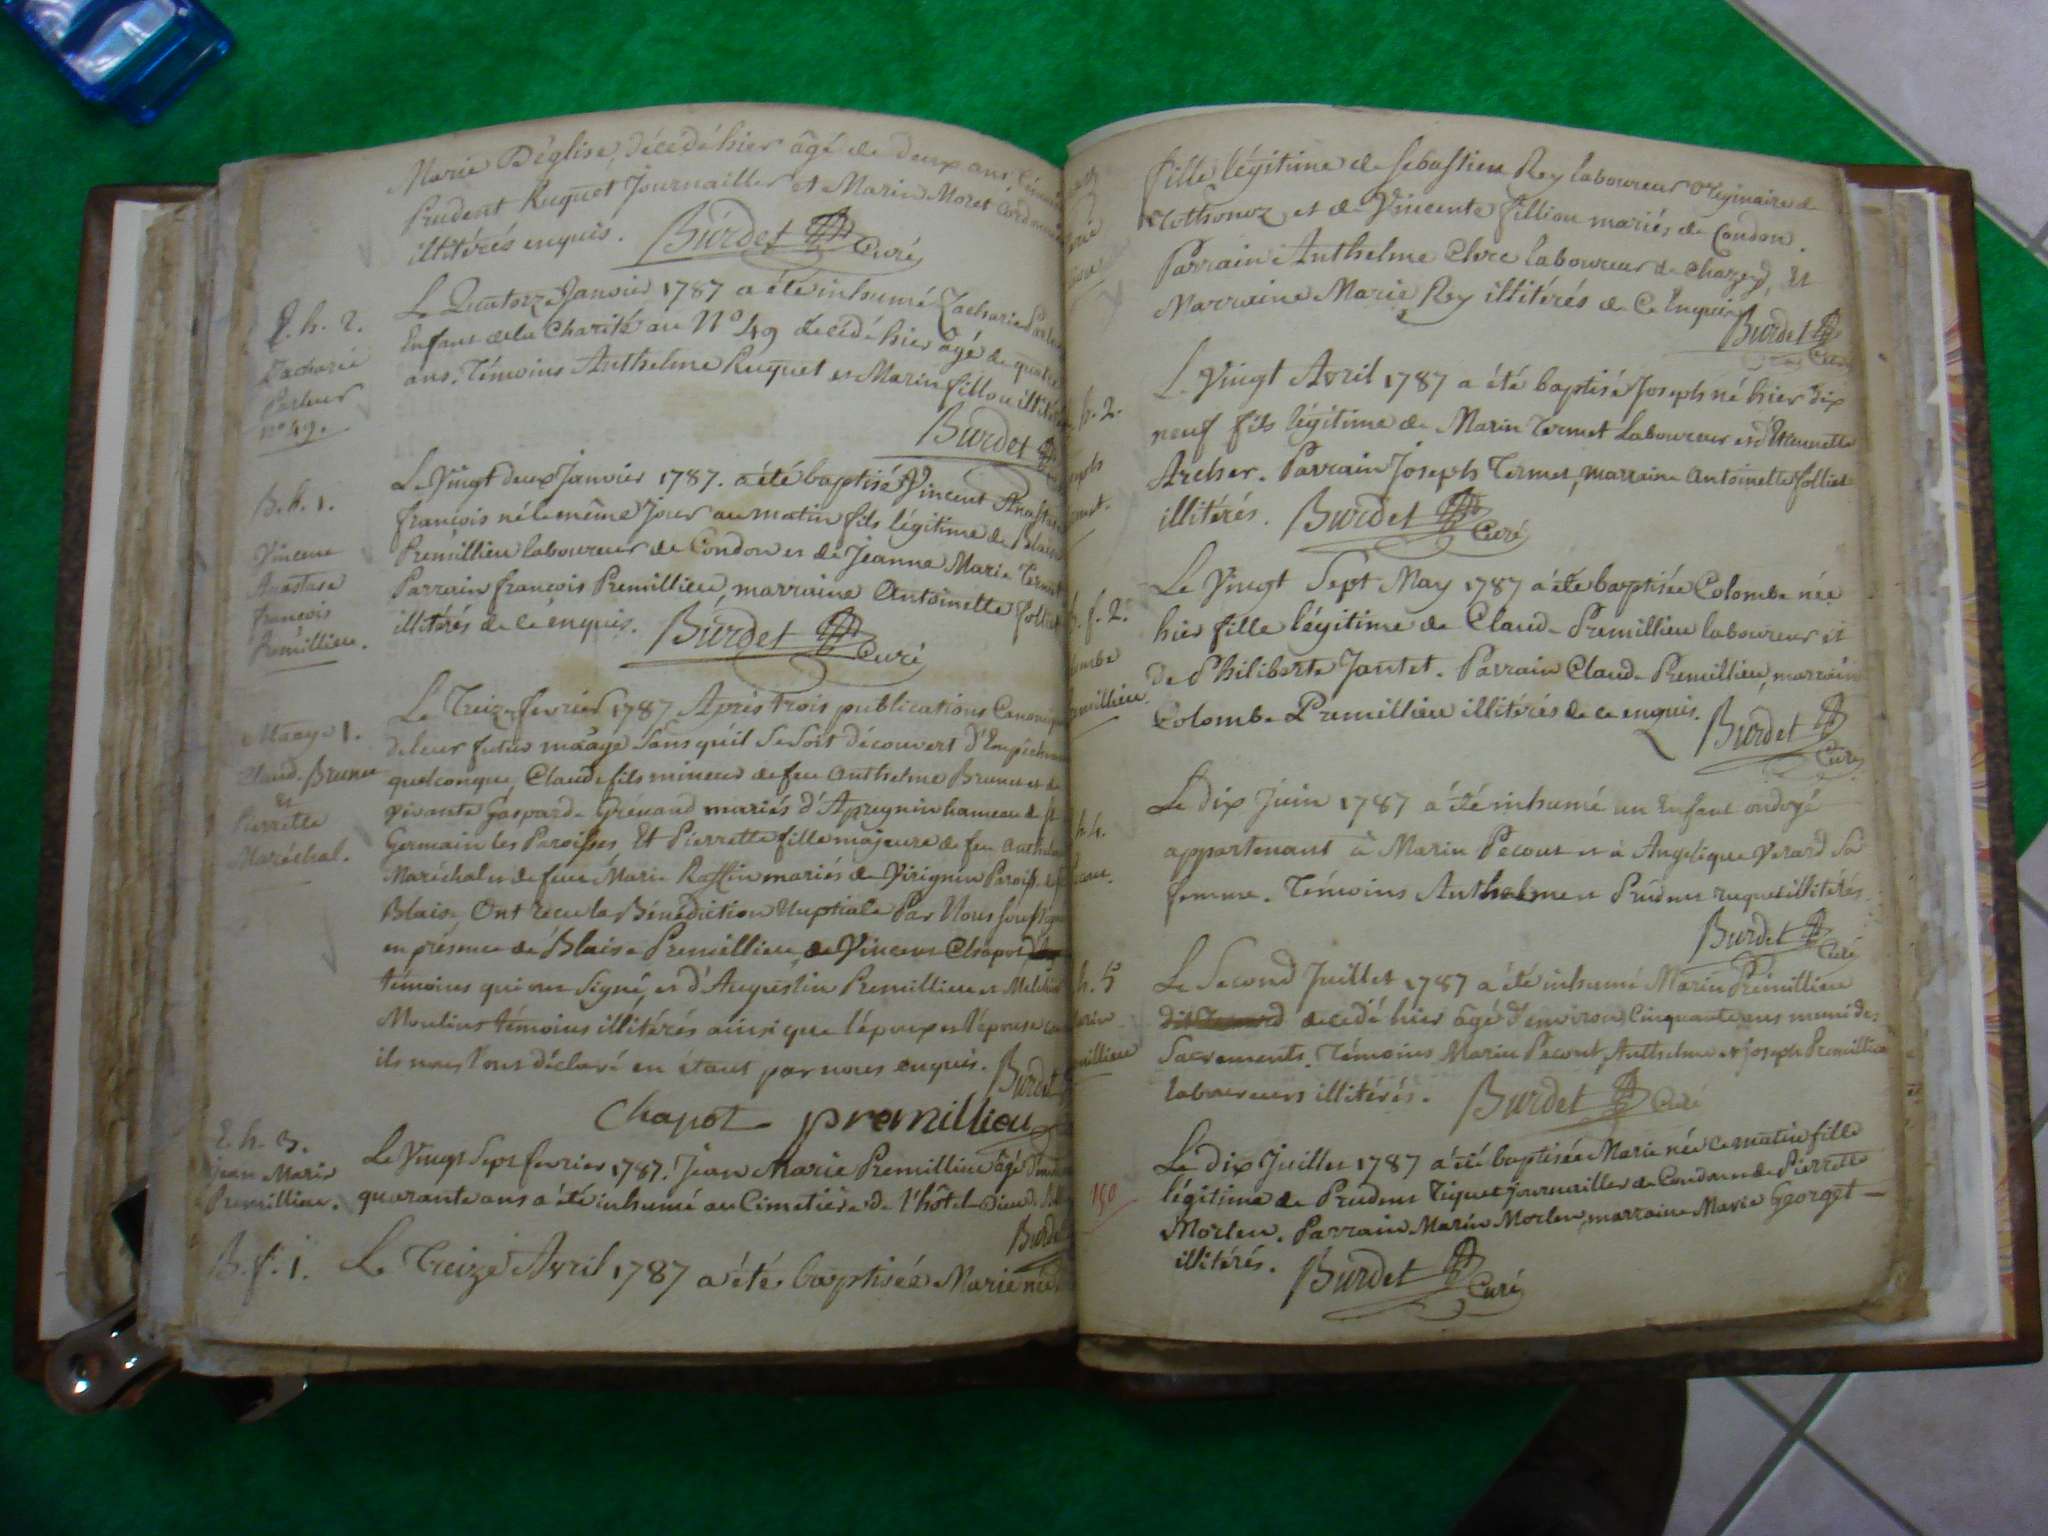 Marie Déglise, décédé hier âgé de deux ans,
Prudent Ruquet Journaillier et Marin Moret
illitérés enquis. Burdet Curé
E. h. 2.
Zacharie
Parleur
n° 49.
Le Quatorze Janvier 1787 a été inhumé Zacharie
Enfant de la Charité au N° 49 décédé hier âgé de quatre
ans. Témoins Anthelme Ruquet et Marin fillou
Burdet
B. h. 1.
Vincent
Anastase
françois
Premillieu.
Le Vingt deux Janvier 1787. a été baptisé Vincent Anastase
françois né le même Jour au matin fils légitime de Blaise
Premillieu laboureur de Condon et de Jeanne Marie
Parrain françois Premillieu, marraine Antoinette
illitérés de ce enquis. Burdet Curé
Maage 1.
Claud. Brunet
et
Pierrette
Maréchal.
Le Treize fevrier 1787 Après trois publications
de leur futur maage Sans qu'il Se Soit découvert d'
quelconque, Claude fils mineur de feu Anthelme Brunet et de
vivante Gasparde Grenaud mariés d'Apregnin hameau de St
Germain les Paroisses Et Pierrette fille majeure de feu
Maréchal et de feue Marie Raffin mariés de Virignin Paroisse
Blaise Ont reçu la Bénédiction Nuptiale Par Nous
en présence de Blaise Premillieu, de Vincent Chapot
témoins qui ont Signé, et d'Augustin Premillieu et
Moulins témoins illitérés ainsi que l'époux et l'épouse
ils nous l'ont déclaré en étant par nous enquis. Burdet
Chapot premillieu
E. h. 3.
jean Marie
Premillieu.
Le Vingt Sept fevrier 1787. Jean Marie Premillieu âgé
quarante ans a été inhumé au Cimetière de l'hôtel Dieu
Burdet
B. f. 1.
Le Treize Avril 1787 a été baptisée Marie née
fille légitime de Sebastien Rey laboureur originaire de
Hothonoz et de Vincente fillion mariés de Condon.
Parrain Anthelme Clerc laboureur de Chazey, Et
Marraine Marie Rey illitérés de Ce Enquis Burdet
Curé
h. 2.
Le Vingt Avril 1787 a été baptisé Joseph né hier dix
neuf fils légitime de Marin Termet Laboureur et d'
Archer. Parrain Joseph Termet, marraine Antoinette folliet
illitérés. Burdet Curé
f. 2.
Le Vingt Sept May 1787 a été baptisée Colombe née
hier fille légitime de Claude Premillieu laboureur et
de Philiberte Jantet. Parrain Claude Premillieu, marraine
Colombe Premillieu illitérés de ce enquis. Burdet
Curé
h. 4.
Le dix Juin 1787 a été inhumé un Enfant ondoyé
appartenant à Marin Pecout et à Angelique Verard Sa
femme. Témoins Anthelme et Prudent ruquet illitérés
Burdet
Curé
h. 5
Le Second Juillet 1787 a été inhumé Marin Prémillieu
décédé hier âgé d'environ Cinquante ans muni des
Sacrements. Témoins Marin Pecout, Anthelme et Joseph Premillieu
laboureurs illitérés. Burdet Curé
190
Le dix Juillet 1787 a été baptisée Marie née ce matin fille
légitime de Prudent Tiquet journaillier de Condon et de Pierrette
Morlen. Parrain Marin Morlen, marraine Marie Georget
illitérés. Burdet Curé